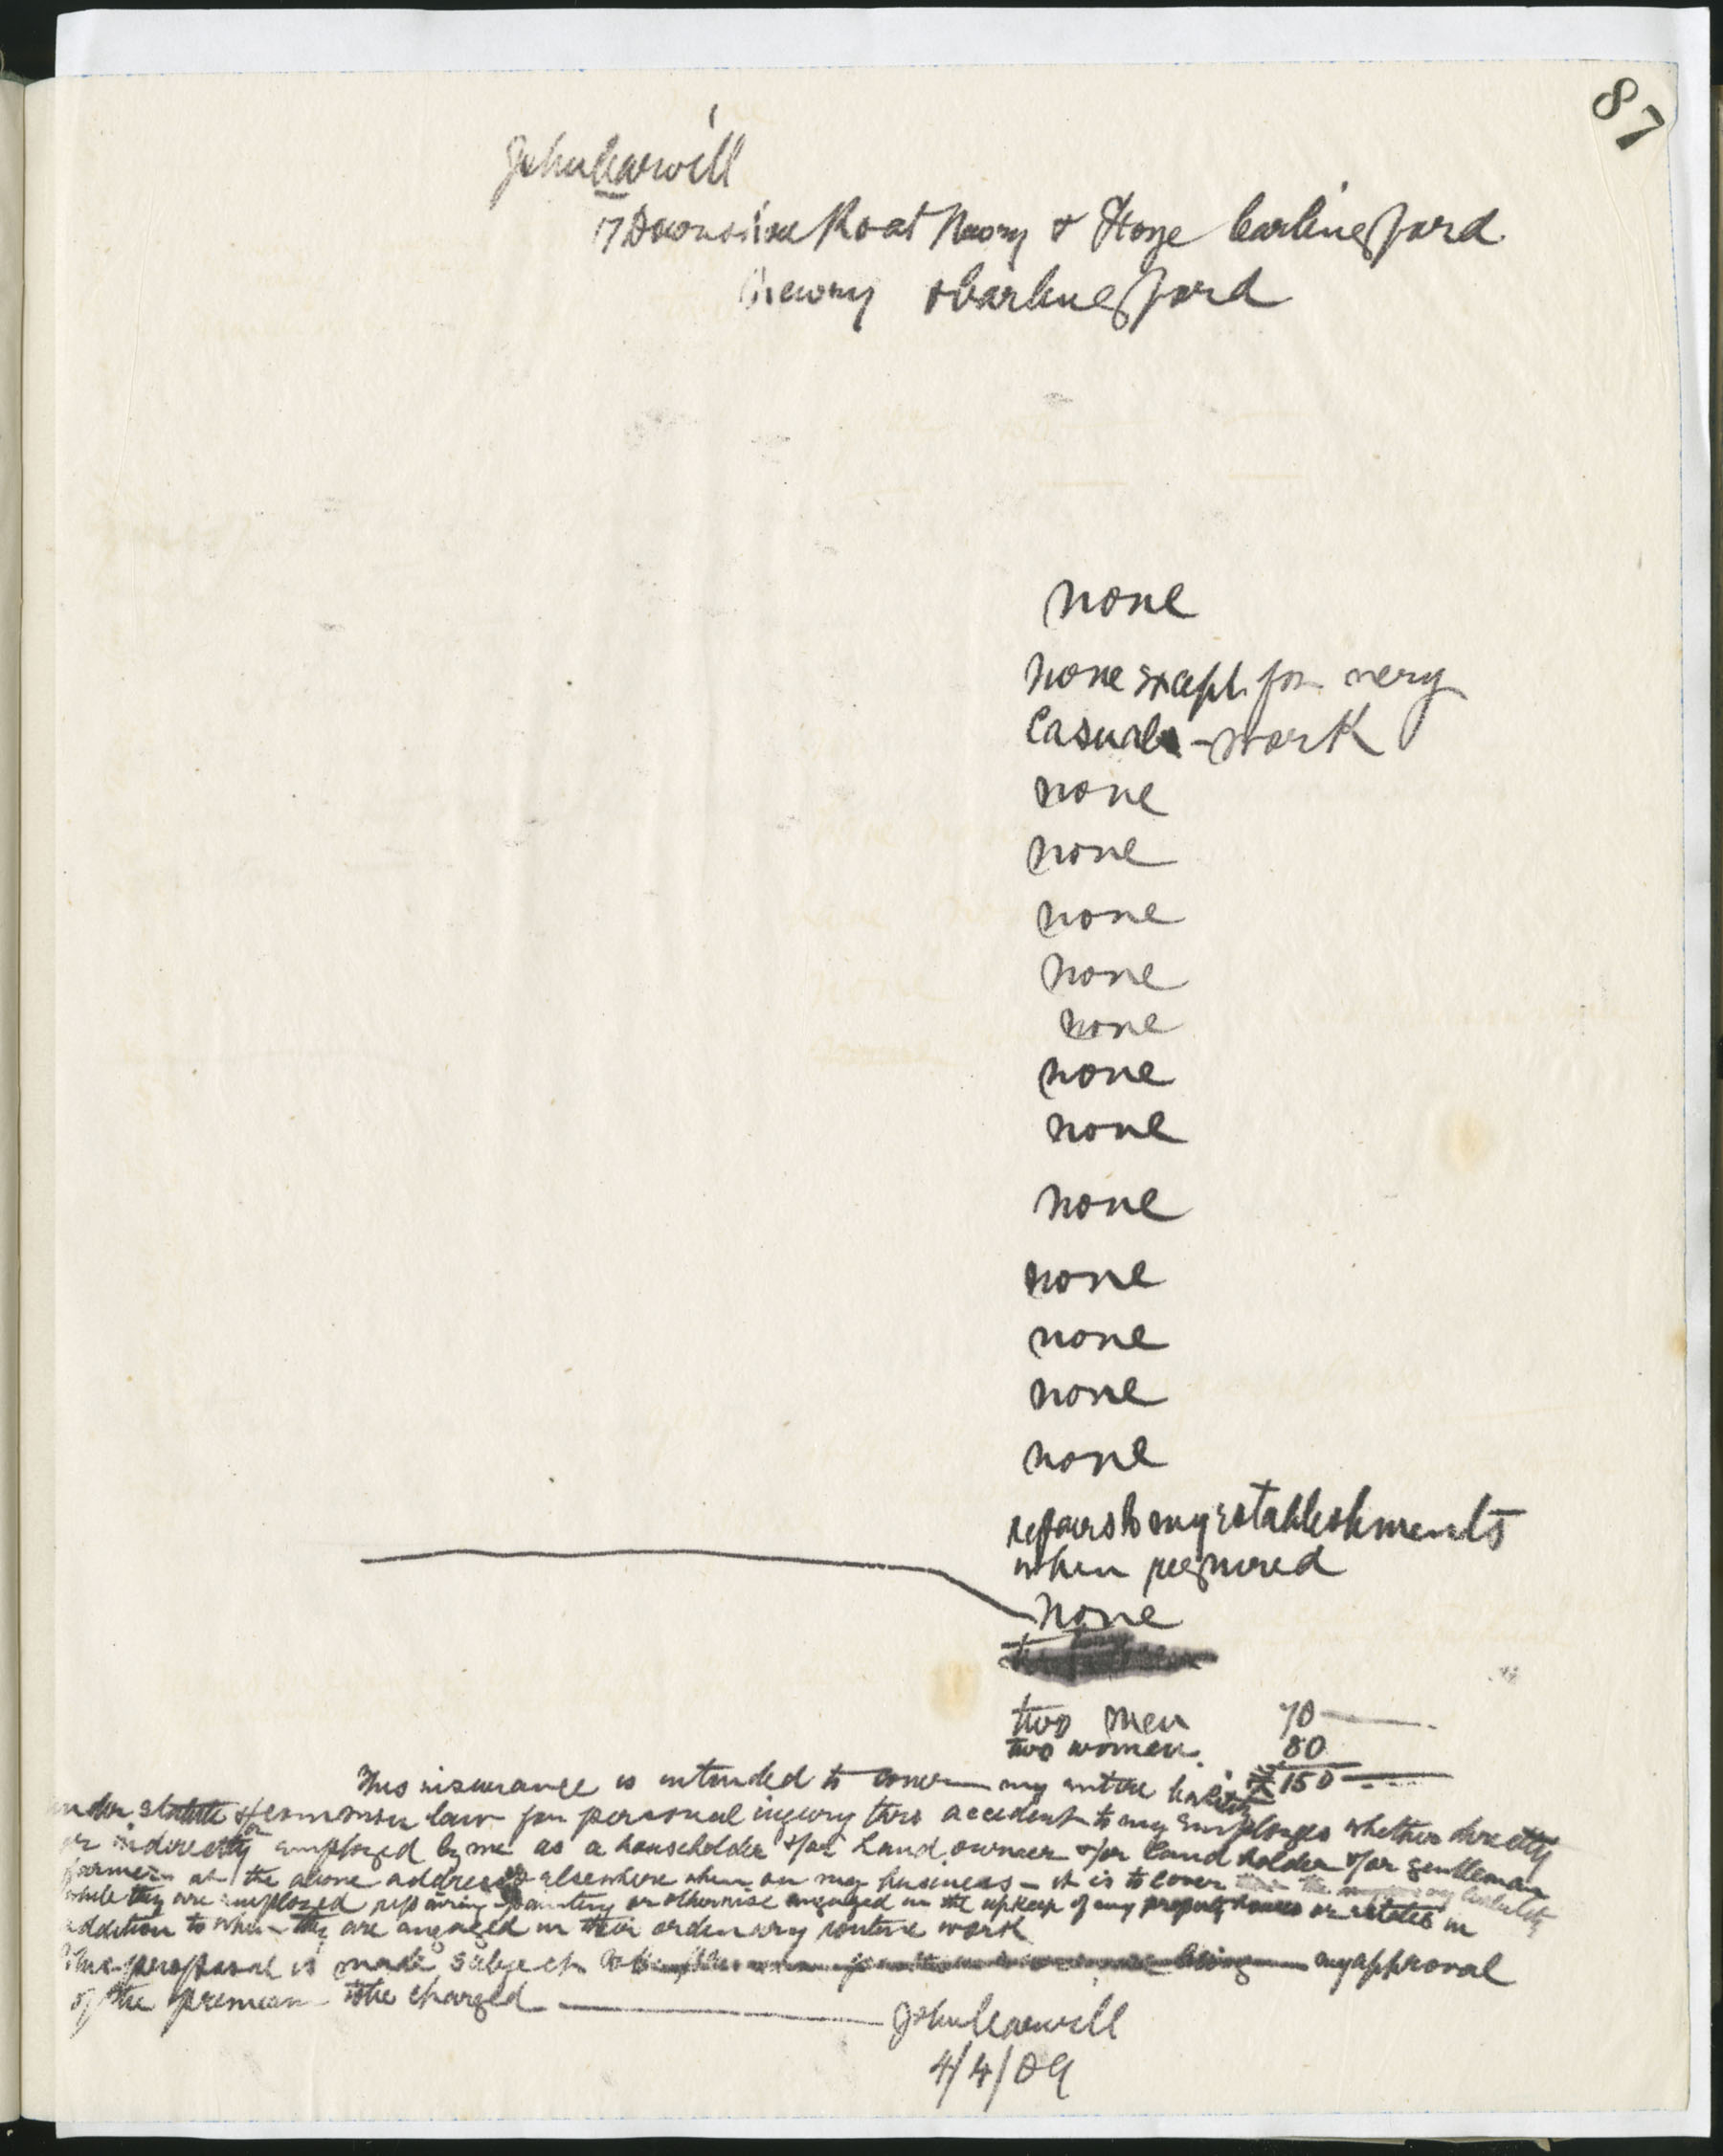 87
John Carvill
17 Downshire Road Newry & Grove Carlingford
Newry & Carlingford
none
none except for very
Casual - work
none
none
none
none
none
none
none
none
none
none
none
none
repairs to my establishments
when required
none
two men 70
two women 80
£ 150
This insurance is intended to cover my entire liability
under statute &/or common law for personal injury thro accident to my employees whether directly
or indirectly employed by me as a householder &/or Land owner &/or land holder &/or gentleman
farmer at the above address or elsewhere when on my business - it is to cover my liability
while they are employed repairing painting or otherwise engaged in the upkeep of my property houses or estates in
addition to when they are engaged in their ordinary routine work
This proposal is made subject to my approval
of the premium to be charged John Carvill
4/4/09